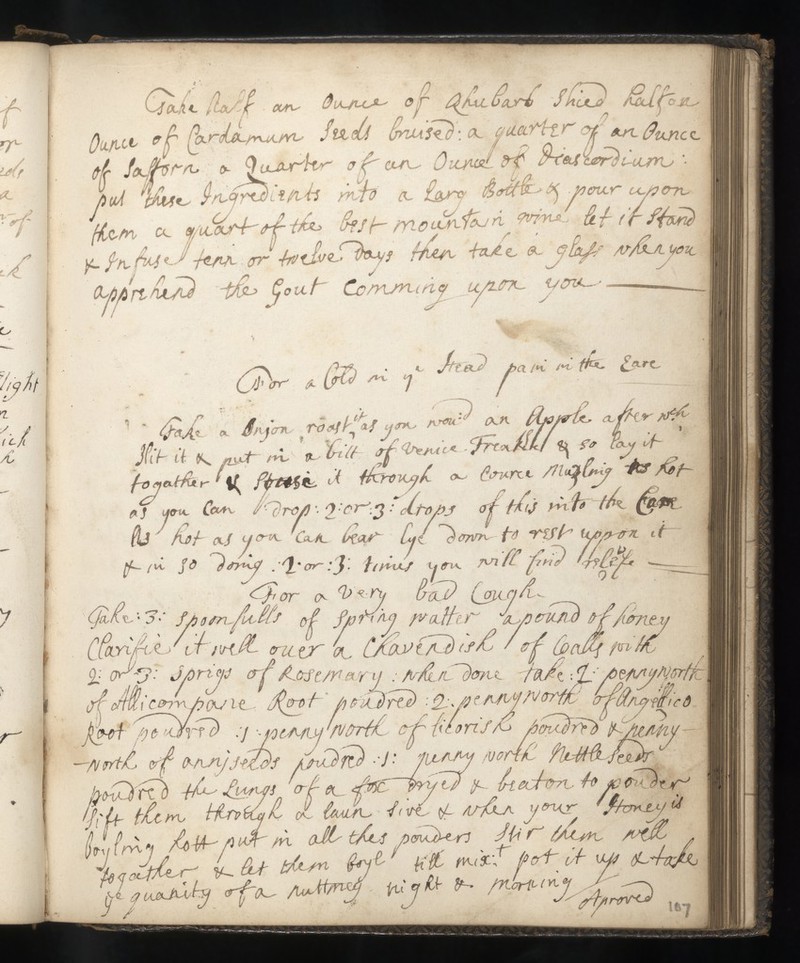 Take Half an Ounce of Rhubarb Slied half an
Ounce of Cardamum Seeds bruised: a quarter of an Ounce
of Safforn a Quarter of an Ounce of Diascordium:
put these Ingredients into a Larg Bottle & pour upon
them a quart of the best mountain wine let it Stand
& Infuse tenn or twelve Days then take a glass when you
apprehend the Gout Comming upon you
For a Cold in ye Head pain in the Eare
Take a Onjon roast it as you wou'd an Apple after wch
Slit it & put in a bitt of Venice Treakle & so Lay it
togather & it through a Cource Muzling as hot
as you Can Drop :2: or :3: drops of this into the Eare
As hot as you Can bear Lye Down to rest uppon it
& in so doing :2: or :3: times you will find relefe
For a Very bad Cough
Take :3: spoonfulls of Spring watter a pound of honey
Clarifie it well over a Chavendish of Coalls with
2: or 3: sprigs of Rosemary: when done take :2: pennyworth
of Allicompane Root poudred :2: pennyworth of Angellico
Root poudred :1: penny worth of licorish poudred & penny-
-worth of annjseeds poudred :1: penny worth Nettle Seeds
poudred the Lungs of a fox Dryed & beaton to pouder
Sift them through a laun Sive & when your Honey is
boyling hott put in all thes pouders Stir them well
togather & let them boyl till mixt pot it up & take
ye quanity of a nuttmeg night & morning
Aproved
187
f
or
eds
a
of
light
n
ich
h
y
r